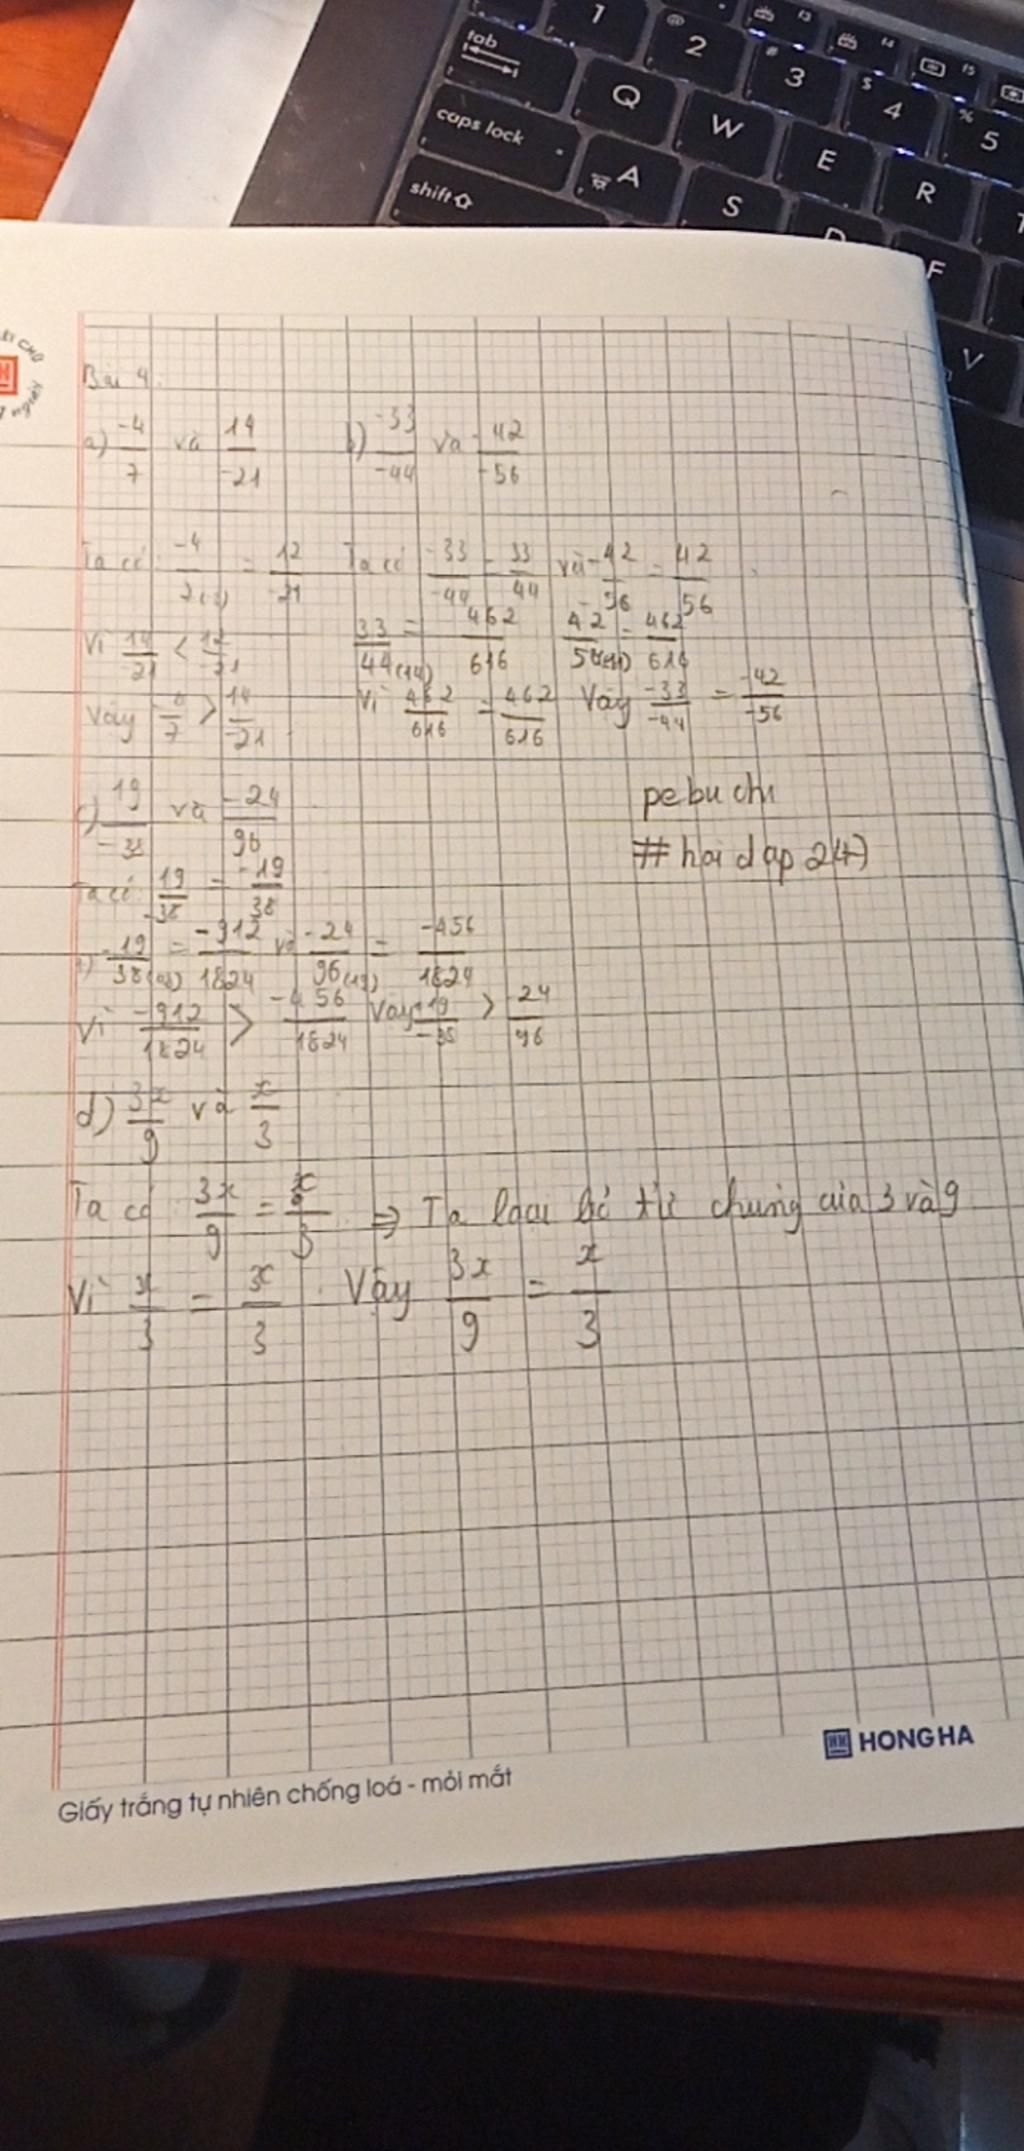 tab
1
2
3
4
5
Q
W
E
R
caps lock
A
S
D
F
shift
V
Bài 4.
a) -4/7 và 14/-21 b) -33/-44 và -42/-56
Ta có -4/7(3) = 12/-21 Ta có -33/-44 = 33/44 và -42/-56 = 42/56
33/44(14) = 462/616 42/56(11) = 462/616
Vì 14/-21 < 12/-21 Vì 462/616 = 462/616 Vậy -33/-44 = -42/-56
Vậy -4/7 > 14/-21
c) 19/-38 và -24/96
pebuchi
#hoidap247
Ta có 19/-38 = -19/38
-19/38 = -912/1824 và -24/96(19) = -456/1824
Vì -912/1824 > -456/1824 Vậy 19/-38 > -24/96
d) 3x/9 và x/3
Ta có 3x/9 = x/3 => Ta loại bỏ từ chung của 3 và 9
Vì x/3 = x/3 . Vậy 3x/9 = x/3
HONG HA
Giấy trắng tự nhiên chống loá - mỏi mắt